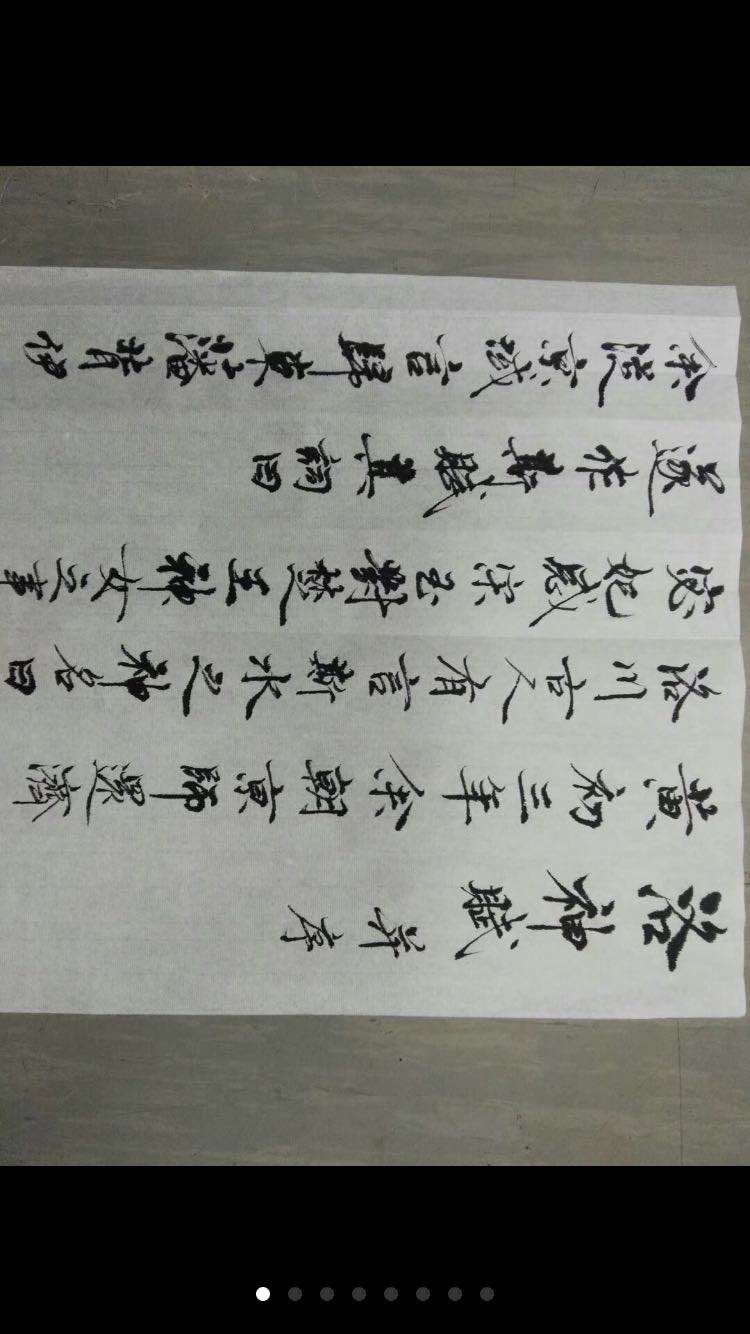 洛神賦 并序
黄初三年余朝京師還濟
洛川古人有言斯水之神名曰
宓妃感宋玉對楚王神女之事
遂作斯賦其詞曰
余從京域言歸東藩背伊